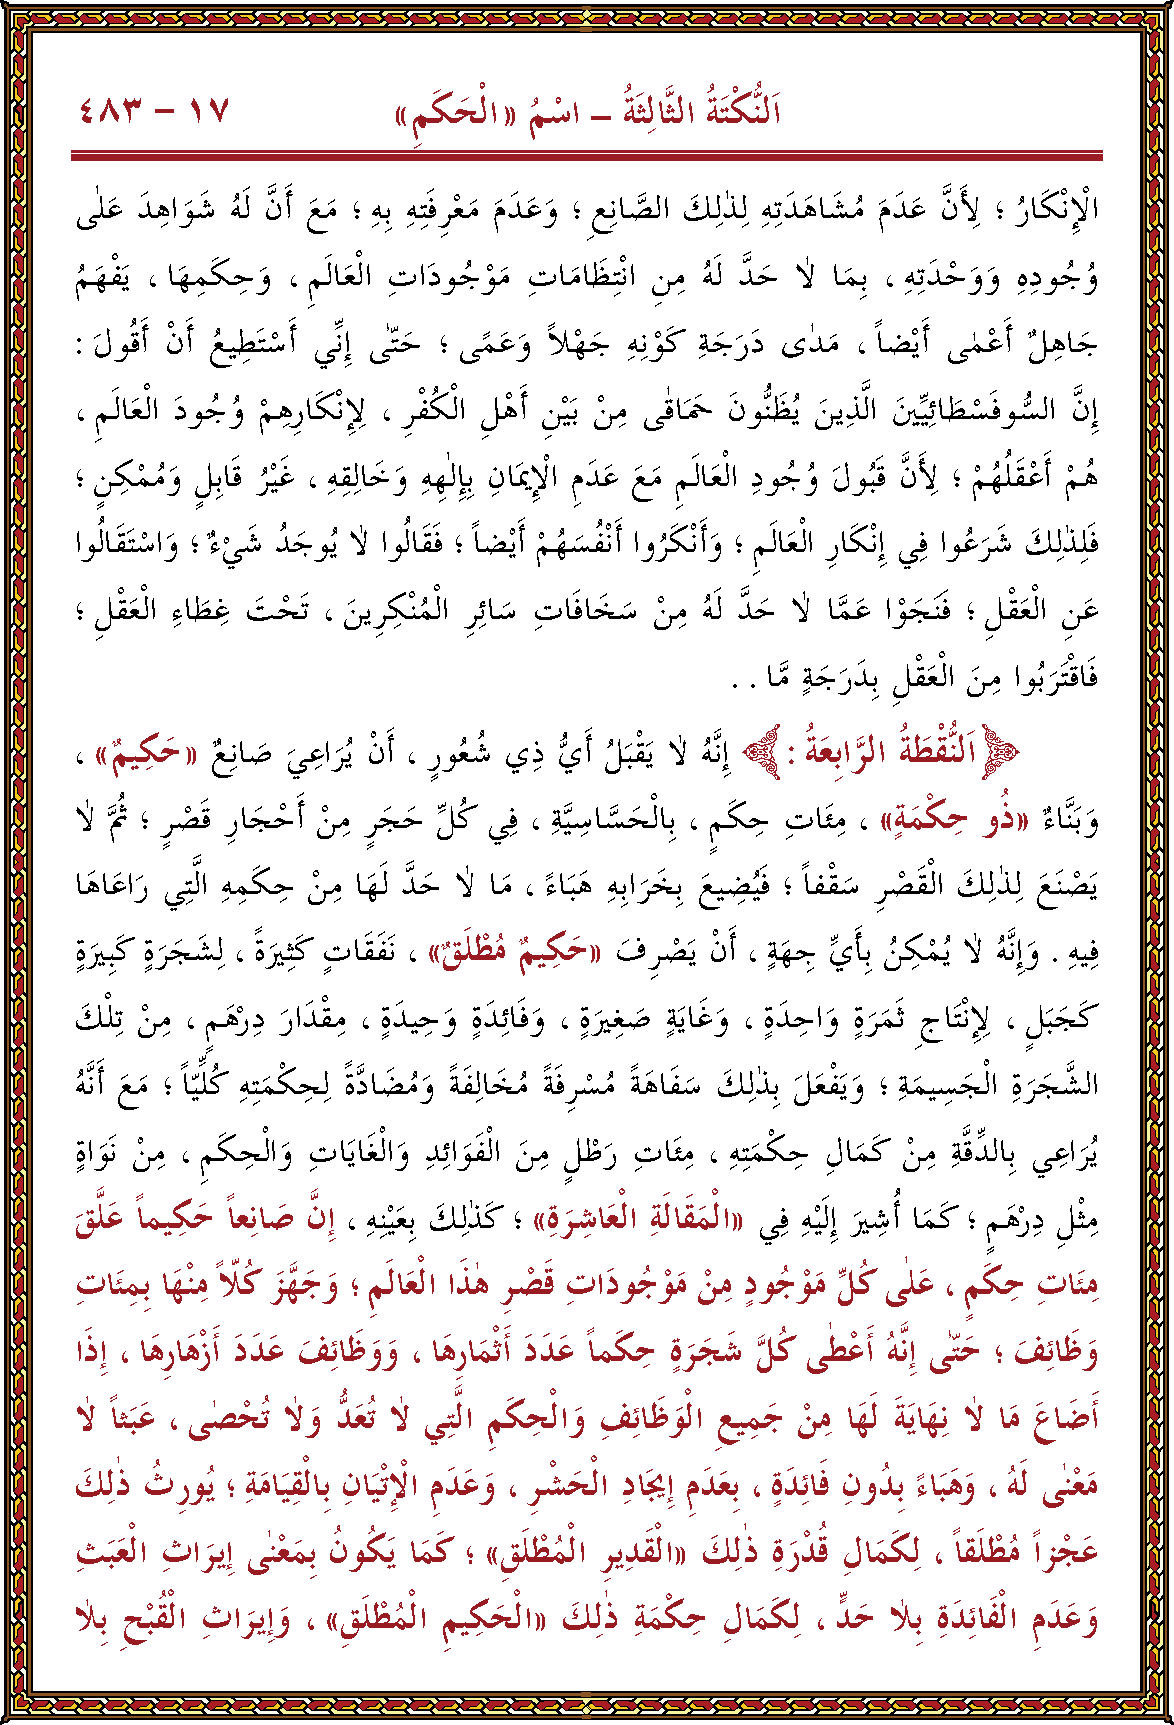 اَلنُّكْتَةُ الثَّالِثَةُ – اسْمُ «الْحَكَمِ» ١٧ – ٤٨٣
الْإِنْكَارُ ؛ لِأَنَّ عَدَمَ مُشَاهَدَتِهِ لِذٰلِكَ الصَّانِعِ ؛ وَعَدَمَ مَعْرِفَتِهِ بِهِ ؛ مَعَ أَنَّ لَهُ شَوَاهِدَ عَلٰى
وُجُودِهِ وَوَحْدَتِهِ ، بِمَا لَا حَدَّ لَهُ مِنِ انْتِظَامَاتِ مَوْجُودَاتِ الْعَالَمِ ، وَحِكَمِهَا ، يُفْهَمُ
جَاهِلٌ أَعْمٰى أَيْضاً ، مَدٰى دَرَجَةِ كَوْنِهِ جَهْلاً وَعَمًى ؛ حَتّٰى إِنِّي أَسْتَطِيعُ أَنْ أَقُولَ :
إِنَّ السُّوفَسْطَائِيِّينَ الَّذِينَ يُظَنُّونَ حَمَاقٰى مِنْ بَيْنِ أَهْلِ الْكُفْرِ ، لِإِنْكَارِهِمْ وُجُودَ الْعَالَمِ ،
هُمْ أَعْقَلُهُمْ ؛ لِأَنَّ قَبُولَ وُجُودِ الْعَالَمِ مَعَ عَدَمِ الْإِيمَانِ بِإِلٰهِهِ وَخَالِقِهِ ، غَيْرُ قَابِلٍ وَمُمْكِنٍ ؛
فَلِذٰلِكَ شَرَعُوا فِي إِنْكَارِ الْعَالَمِ ؛ وَأَنْكَرُوا أَنْفُسَهُمْ أَيْضاً ؛ فَقَالُوا لَا يُوجَدُ شَيْءٌ ؛ وَاسْتَقَالُوا
عَنِ الْعَقْلِ ؛ فَنَجَوْا عَمَّا لَا حَدَّ لَهُ مِنْ سَخَافَاتِ سَائِرِ الْمُنْكِرِينَ ، تَحْتَ غِطَاءِ الْعَقْلِ ؛
فَاقْتَرَبُوا مِنَ الْعَقْلِ بِدَرَجَةٍ مَّا . .
اَلنُّقْطَةُ الرَّابِعَةُ : إِنَّهُ لَا يَقْبَلُ أَيُّ ذِي شُعُورٍ ، أَنْ يُرَاعِيَ صَانِعٌ «حَكِيمٌ» ،
وَبَنَّاءٌ «ذُو حِكْمَةٍ» ، مِئَاتِ حِكَمٍ ، بِالْحَسَّاسِيَّةِ ، فِي كُلِّ حَجَرٍ مِنْ أَحْجَارِ قَصْرٍ ؛ ثُمَّ لَا
يَصْنَعَ لِذٰلِكَ الْقَصْرِ سَقْفاً ؛ فَيُضِيعَ بِخَرَابِهِ هَبَاءً ، مَا لَا حَدَّ لَهَا مِنْ حِكَمِهِ الَّتِي رَاعَاهَا
فِيهِ . وَإِنَّهُ لَا يُمْكِنُ بِأَيِّ جِهَةٍ ، أَنْ يَصْرِفَ «حَكِيمٌ مُطْلَقٌ» ، نَفَقَاتٍ كَثِيرَةً ، لِشَجَرَةٍ كَبِيرَةٍ
كَجَبَلٍ ، لِإِنْتَاجِ ثَمَرَةٍ وَاحِدَةٍ ، وَغَايَةٍ صَغِيرَةٍ ، وَفَائِدَةٍ وَحِيدَةٍ ، مِقْدَارَ دِرْهَمٍ ، مِنْ تِلْكَ
الشَّجَرَةِ الْجَسِيمَةِ ؛ وَيَفْعَلَ بِذٰلِكَ سَفَاهَةً مُسْرِفَةً مُخَالِفَةً وَمُضَادَّةً لِحِكْمَتِهِ كُلِّيّاً ؛ مَعَ أَنَّهُ
يُرَاعِي بِالدِّقَّةِ مِنْ كَمَالِ حِكْمَتِهِ ، مِئَاتِ رَطْلٍ مِنَ الْفَوَائِدِ وَالْغَايَاتِ وَالْحِكَمِ ، مِنْ نَوَاةٍ
مِثْلِ دِرْهَمٍ ؛ كَمَا أُشِيرَ إِلَيْهِ فِي «الْمَقَالَةِ الْعَاشِرَةِ» ؛ كَذٰلِكَ بِعَيْنِهِ ، إِنَّ صَانِعاً حَكِيماً عَلَّقَ
مِئَاتِ حِكَمٍ ، عَلٰى كُلِّ مَوْجُودٍ مِنْ مَوْجُودَاتِ قَصْرِ هٰذَا الْعَالَمِ ؛ وَجَهَّزَ كُلّاً مِنْهَا بِمِئَاتِ
وَظَائِفَ ؛ حَتّٰى إِنَّهُ أَعْطٰى كُلَّ شَجَرَةٍ حِكَماً عَدَدَ أَثْمَارِهَا ، وَوَظَائِفَ عَدَدَ أَزْهَارِهَا ، إِذَا
أَضَاعَ مَا لَا نِهَايَةَ لَهَا مِنْ جَمِيعِ الْوَظَائِفِ وَالْحِكَمِ الَّتِي لَا تُعَدُّ وَلَا تُحْصٰى ، عَبَثاً لَا
مَعْنٰى لَهُ ، وَهَبَاءً بِدُونِ فَائِدَةٍ ، بِعَدَمِ إِيجَادِ الْحَشْرِ ، وَعَدَمِ الْإِتْيَانِ بِالْقِيَامَةِ ؛ يُورِثُ ذٰلِكَ
عَجْزاً مُطْلَقاً ، لِكَمَالِ قُدْرَةِ ذٰلِكَ «الْقَدِيرِ الْمُطْلَقِ» ؛ كَمَا يَكُونُ بِمَعْنٰى إِيرَاثِ الْعَبَثِ
وَعَدَمِ الْفَائِدَةِ بِلَا حَدٍّ ، لِكَمَالِ حِكْمَةِ ذٰلِكَ «الْحَكِيمِ الْمُطْلَقِ» ، وَإِيرَاثِ الْقُبْحِ بِلَا